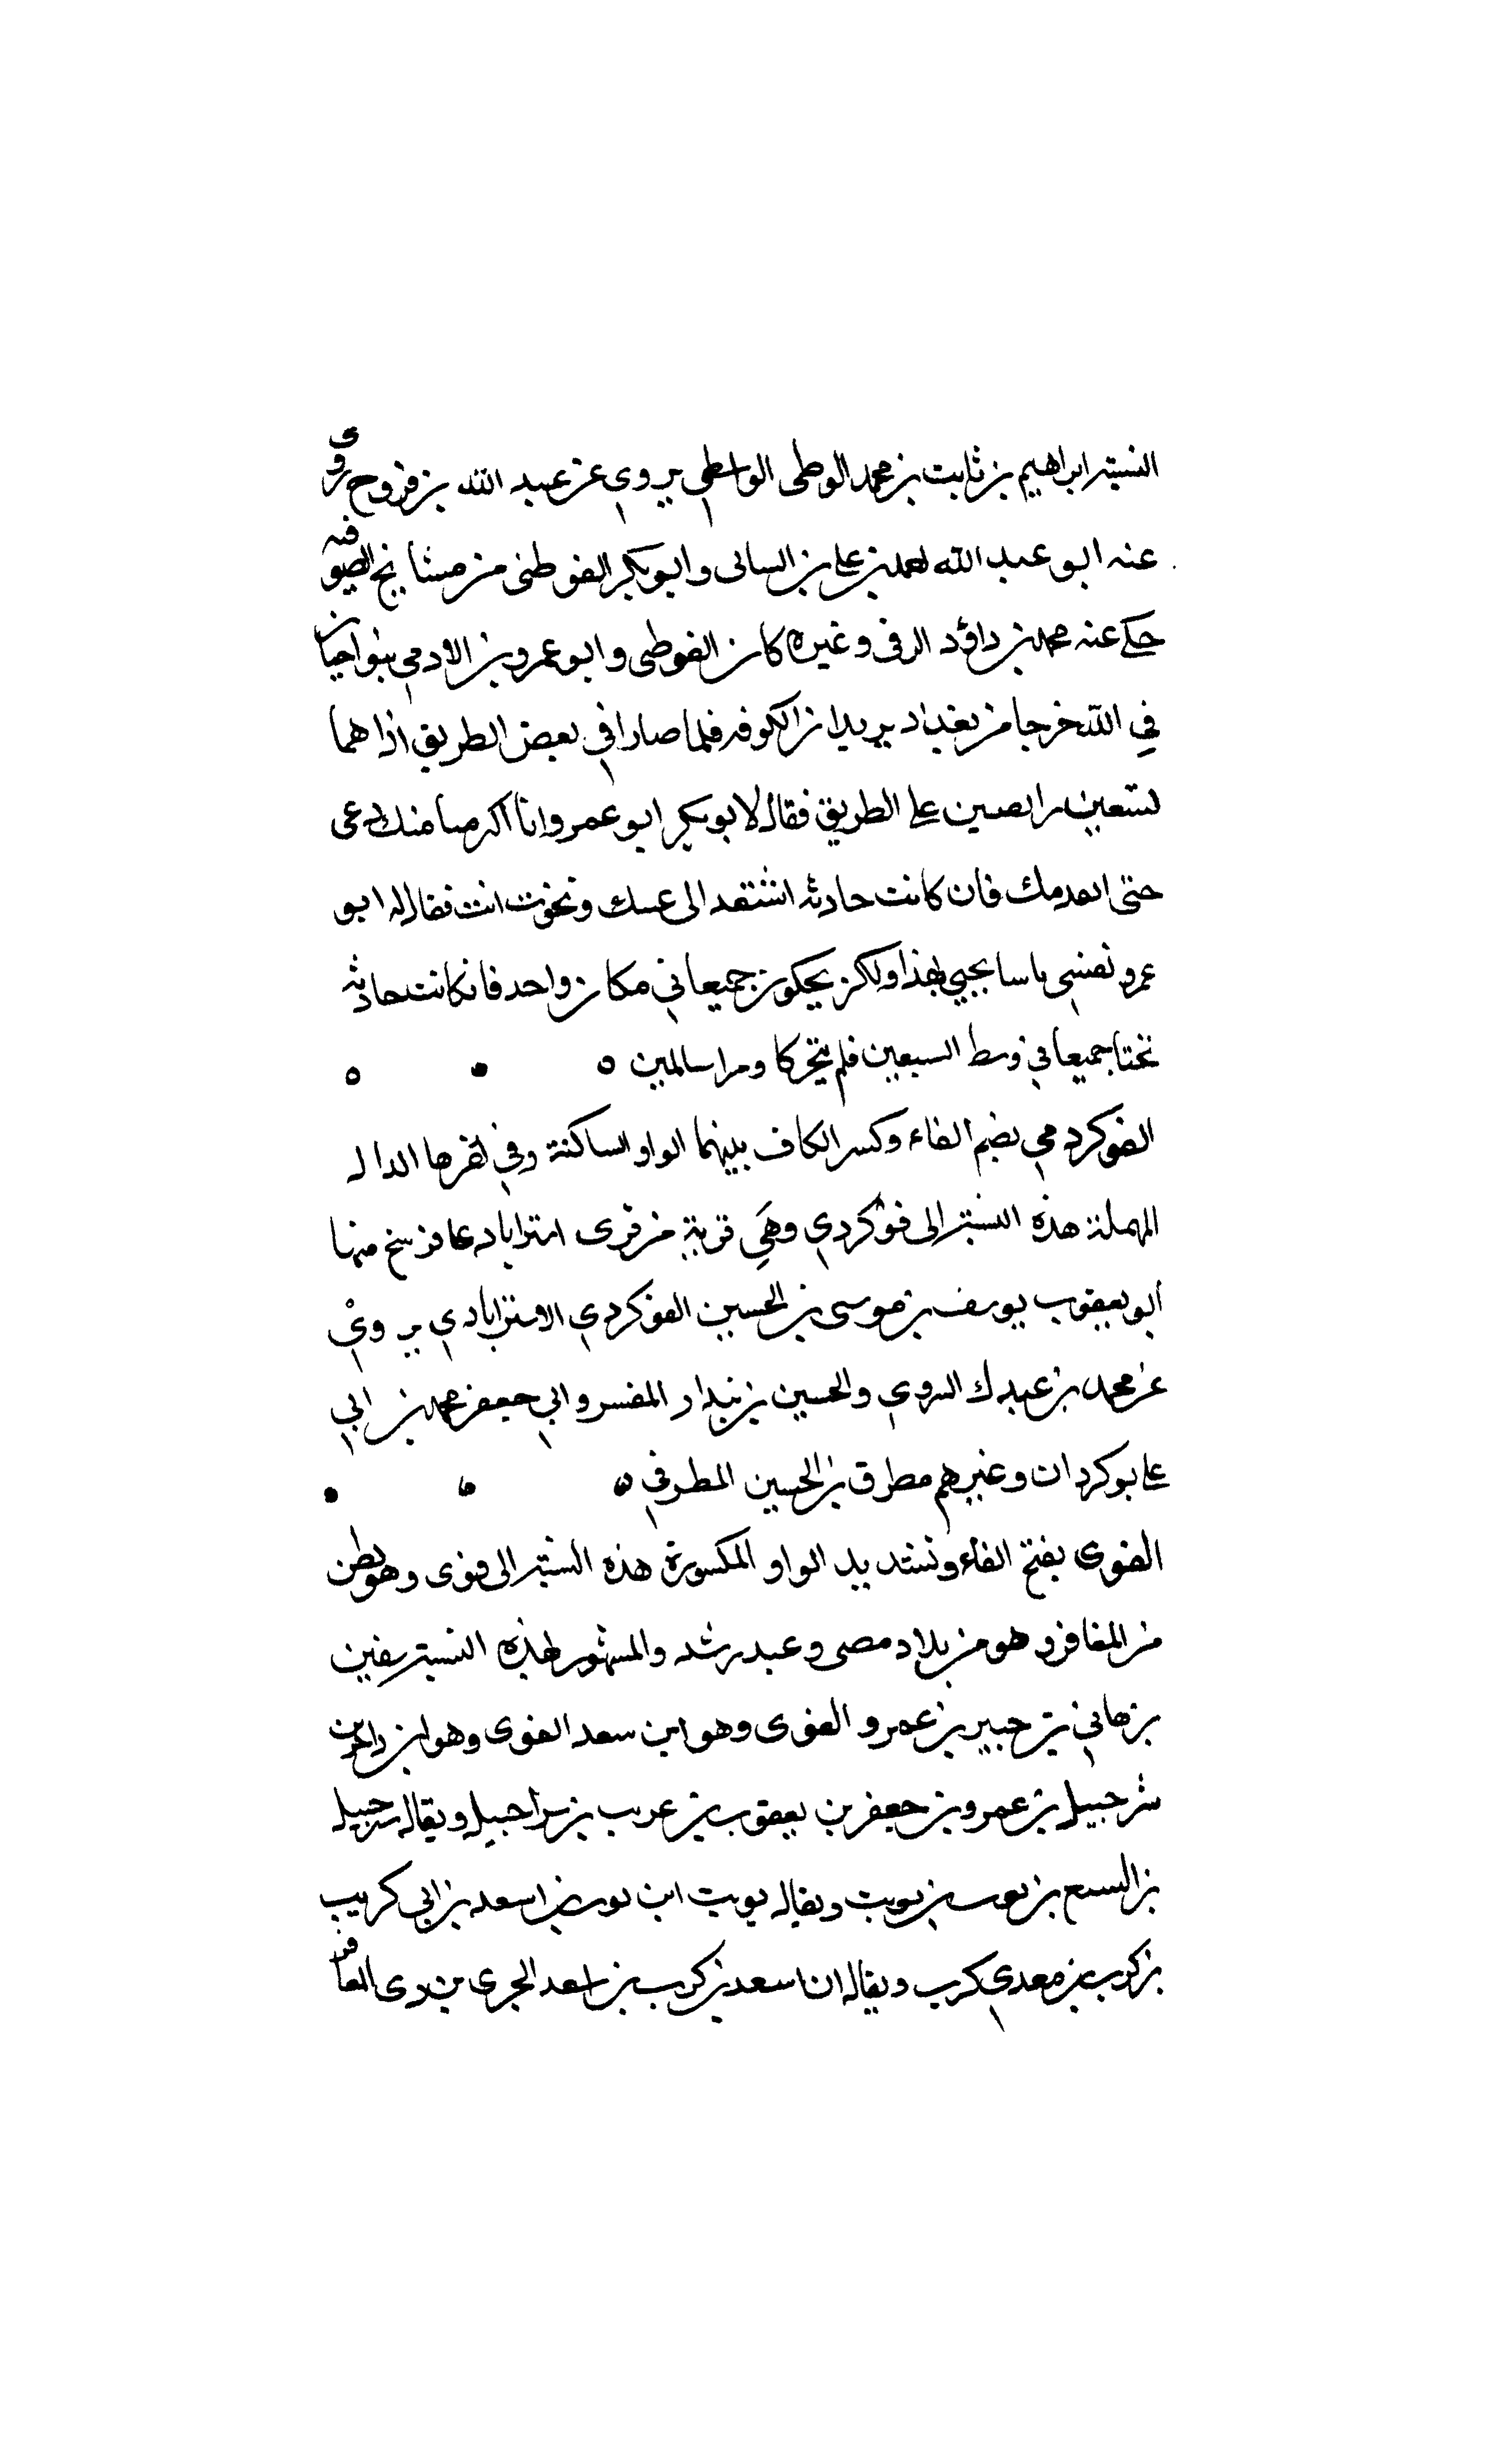 النسبة ابراهيم بن ثابت بن محمد الوطى الواسطي يروي عن عبد الله بن فروح روى
عنه ابو عبد الله احمد بن علي بن السالى وابوبكر الفوطى من مشايخ الصوفيه
حكى عنه محمد بن داوٗد الرقى وغيره كان الفوطى وابو عمرو بن الادمي يتواخيان
في الله خرجا من بغداد يريدان الكوفه فلما صارا في بعض الطريق اذا هما
بسبعين رابضين على الطريق فقال لابوبكر ابو عمرو انا اكبر سنا منك دعى
حتى اتقدمك فان كانت حادثه اشتغلا لى عنك ونجوت انت فقال له ابو
عمرو نفسي ما سا محيي بهذا ولكن يكون جميعا في مكان واحد فان كانت حادثه
نختا جميعا في وسط السبعين فلم يتحركا ومرا سالمين ٥
الفوكردي بضم الفاء وكسر الكاف بينهما الواو الساكنة وفي اخرها الدال
المهملة هذه النسبة الى فوكردي وهَي قرية من قرى استراباد على فرسخ منها
ابو يعقوب يوسف بن موسى بن الحسين الفوكردي الاستراباذي يروي
عن محمد بن عبدك السروي والحسين بن بندار المفسر وابي جعفر محمد بن ابي
على بوكردان وغيرهم مطرق بن الحسين المطرفي ٥
الفوى بفتح الفاء وتشديد الواو المكسورة هذه النسبة الى فوى وهو بطن
من المغافر وهو من بلاد مصر وعبد رشد والمشهور بهذه النسبة سفين
بن هاني بن جبير بن عمرو الفوى وهو ابن سعد الفوى وهو ابن ذاخر بن
شرحبيل بن عمرو بن جعفر بن يعقوب بن عريب بن شراحبيل ويقال شرحبيل
بن السمع بن يوب بن يويت ويقال يويت ابن اسعد بن ابي كريب
بن كرب بن معدي كرب ويقال ان اسعد بن كرب بن اسعد الجرى من دى المعافر